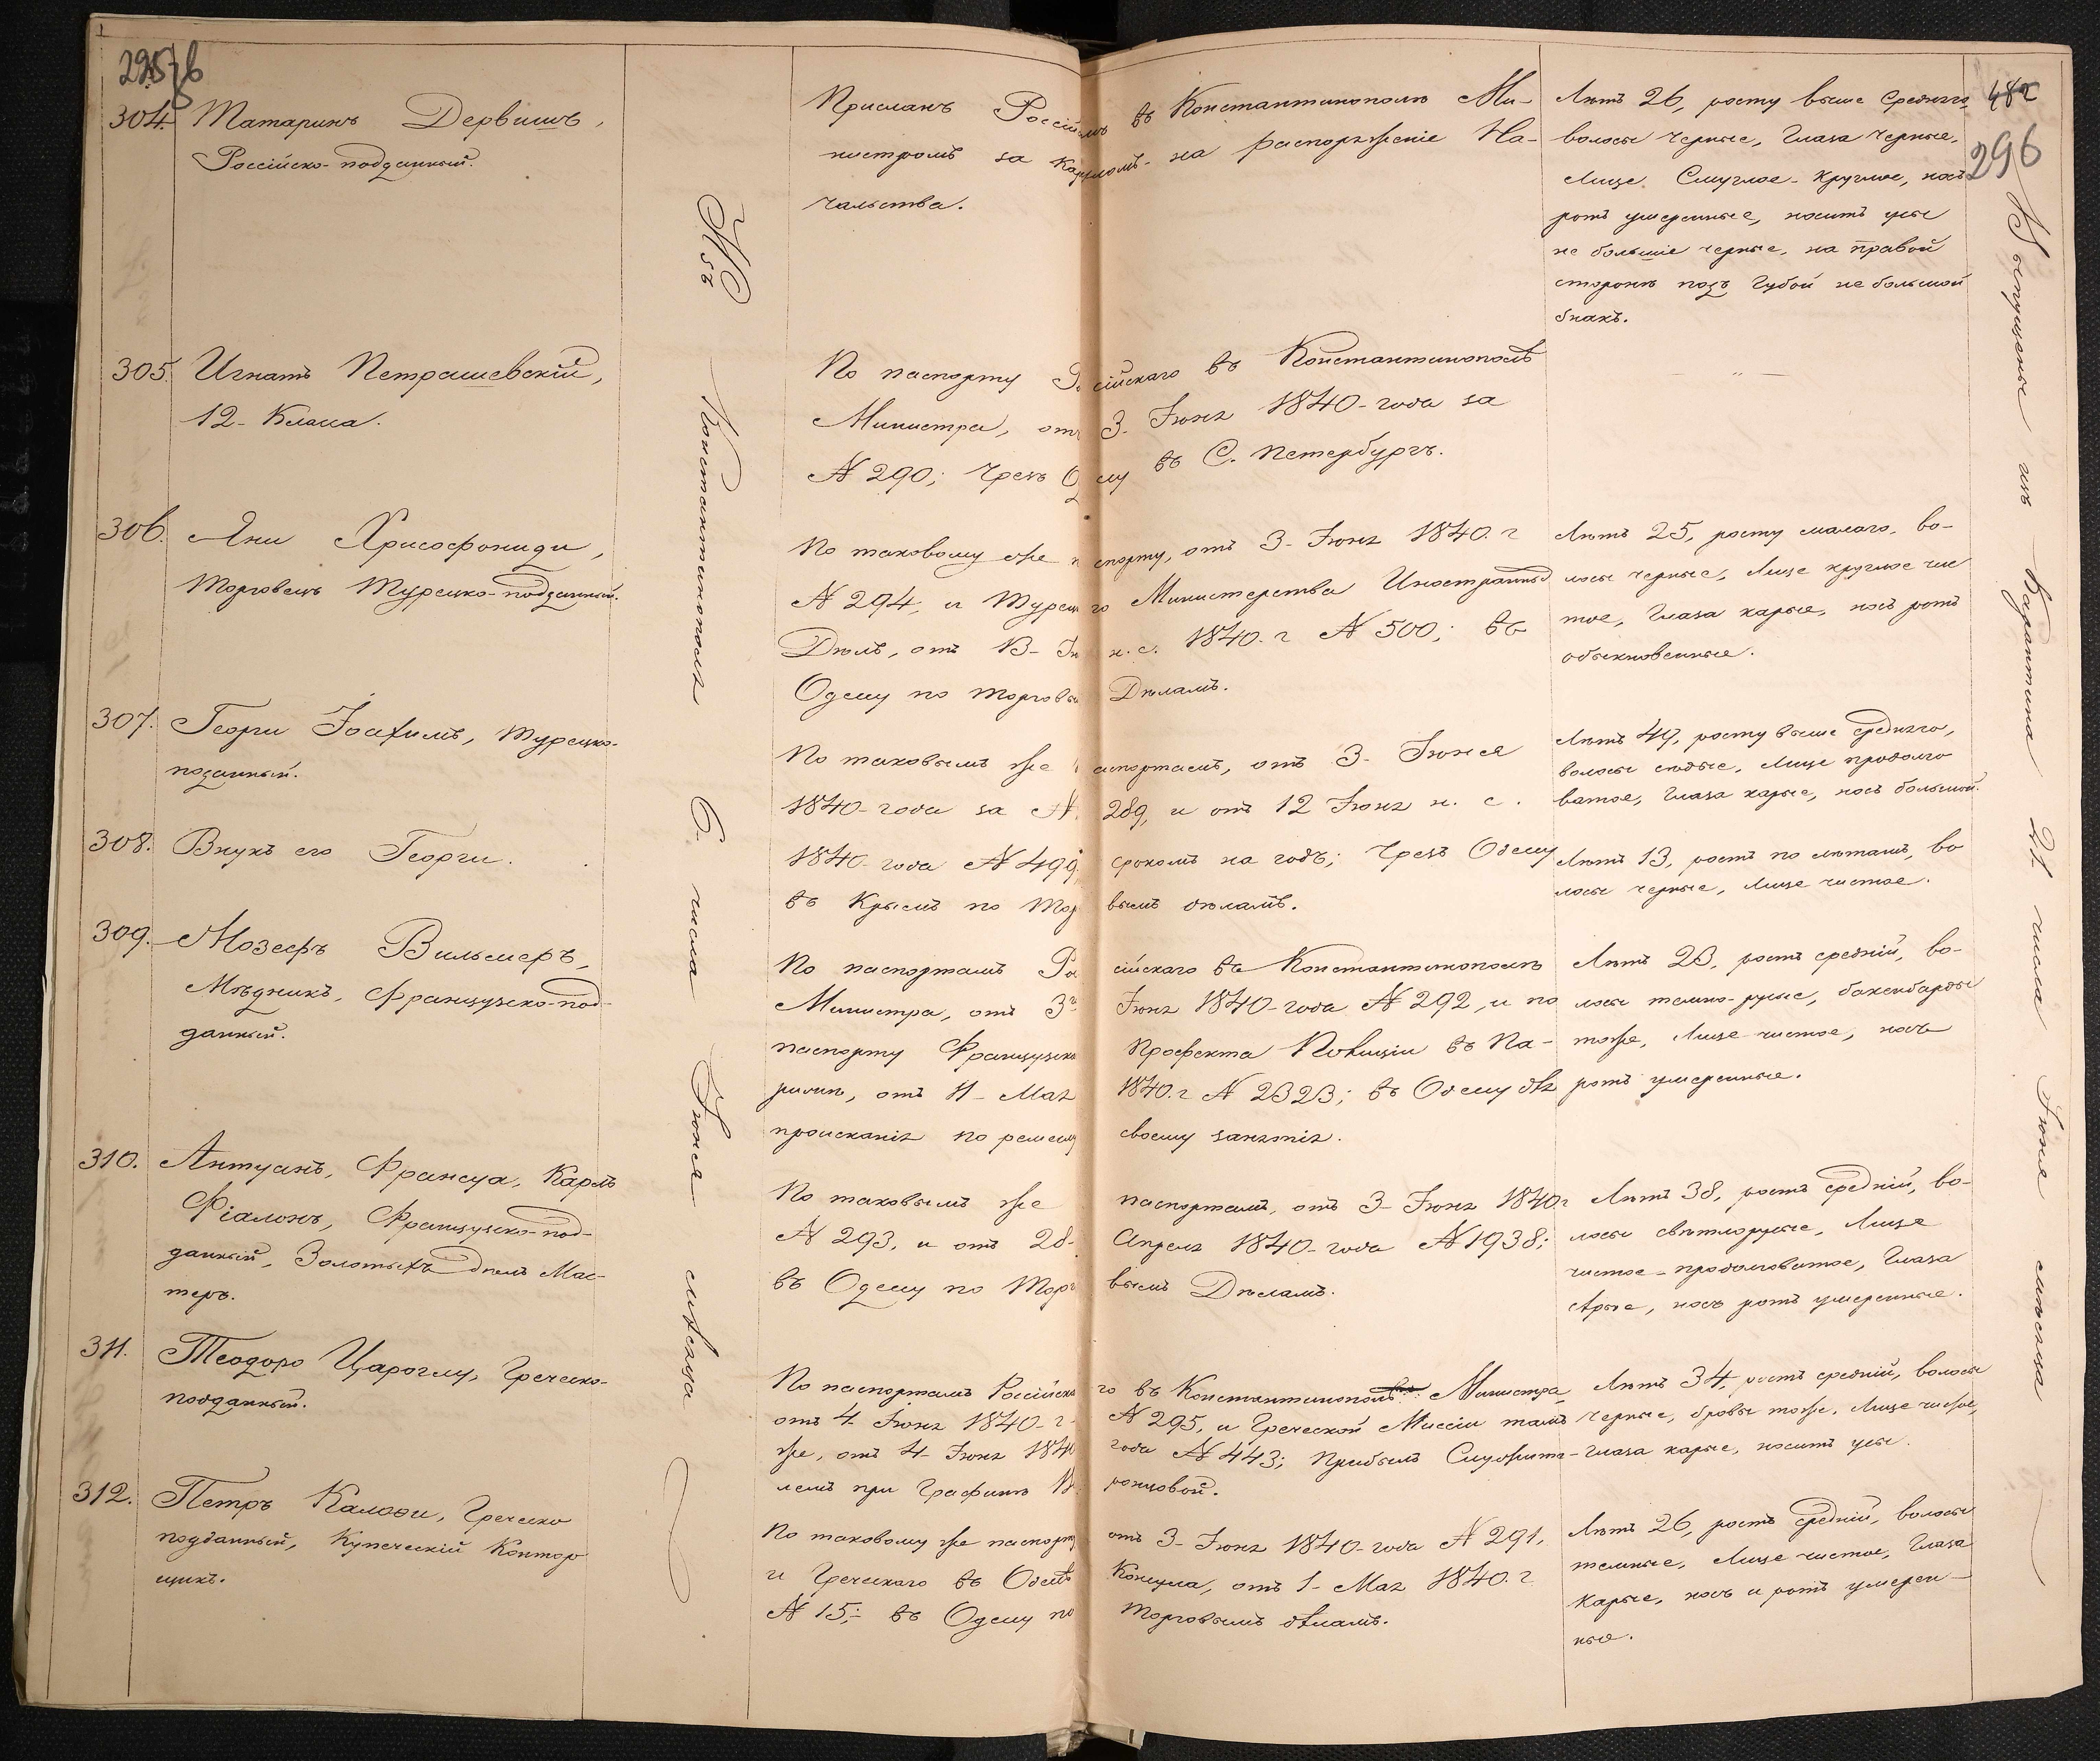 295 б
482
296
304. Татаринъ Дервишъ,
Россійско-подданный.
Изъ Константинополя 6. числа Іюня мѣсяца
Присланъ Россійскимъ въ Константинополѣ Ми-
нистромъ за на распоряженіе На-
чальства.
Лѣтъ 26, росту выше средняго,
волосы черные, глаза черные,
лице смуглое-круглое, носъ
ротъ умеренные, носитъ усы
не большіе черные, на правой
сторонѣ подъ губой не большой
знакъ.
Выпущены изъ Карантина 21 числа Іюня мѣсяца
305. Игнатъ Петрашевскій,
12-Класса.
По паспорту Россійскаго въ Константинополѣ
Министра, отъ 3-Іюня 1840-года за
N 290; Чрезъ Одессу въ С. Петербургъ.
— " —
306. Яни Хрисофониди,
Торговецъ Турецко-подданный.
По таковому же паспорту, отъ 3-Іюня 1840. г
N 294, и Турецкаго Министерства Иностранныхъ
Дѣлъ, отъ 13-Іюня н. с. 1840. г N 500; въ
Одессу по торговымъ Дѣламъ.
Лѣтъ 25, росту малаго, во-
лосы черные, лице круглое чис
тое, глаза карые, носъ ротъ
обыкновенные.
307. Георги Іоакимъ, Турецко-
поданный.
По таковымъ же паспортамъ, отъ 3-Іюня
1840-года за N 289, и отъ 12 Іюня н. с.
1840-года N 499, срокомъ на годъ; Чрезъ Одессу
въ Крымъ по Торговымъ дѣламъ.
Лѣтъ 49, росту выше средняго,
волосы сѣдые, лице продолго
ватое, глаза карые, носъ большой.
308. Внукъ его Георги.
Лѣтъ 13, ростъ по лѣтамъ, во
лосы черные, лице чистое.
309. Жозефъ Вильмеръ,
Мѣдникъ, Французско-под-
данный.
По паспортамъ Россійскаго въ Константинополѣ
Министра, отъ 3го Іюня 1840-года N 292, и по
паспорту Французскаго Префекта Полиціи въ Па-
рижѣ, отъ 11-Мая 1840. г N 2323; въ Одессу для
происканія по ремеслу своему занятія.
Лѣтъ 23, ростъ средній, во-
лосы темно-русые, бакенбарды
тоже, лице чистое, носъ
ротъ умеренные.
310. Антуанъ, Франсуа, Карлъ
Фіалонъ, Французско-под-
данный, Золотыхъ дѣлъ Мас-
теръ.
По таковымъ же паспортамъ, отъ 3-Іюня 1840 г
N 293, и отъ 28-Апреля 1840-года N 1938;
въ Одессу по Торговымъ Дѣламъ.
Лѣтъ 38, ростъ средній, во-
лосы свѣтлорусые, лице
чистое-продолговатое, глаза
сѣрые, носъ ротъ умеренные.
311. Теодоро Цароглу, Греческо-
подданный.
По паспортамъ Россійскаго въ Константинополѣ Министра,
отъ 4 Іюня 1840-г N 295, и Греческой Миссіи тамъ
же, отъ 4-Іюня 1840 года N 443; Прибылъ Служите-
лемъ при Графинѣ Воронцовой.
Лѣтъ 34, ростъ средній, волосы
черные, брови тоже, лице чистое,
глаза карые, носитъ усы.
312. Петръ Калоѳи, Греческо
подданный, Купеческій Контор
щикъ.
По таковому же паспорту отъ 3-Іюня 1840-года N 291,
и Греческаго въ Одессѣ Консула, отъ 1-Мая 1840. г
N 15;- въ Одессу по Торговымъ дѣламъ.
Лѣтъ 26, ростъ средній, волосы
темные, лице чистое, глаза
карые, носъ и ротъ умерен-
ные.